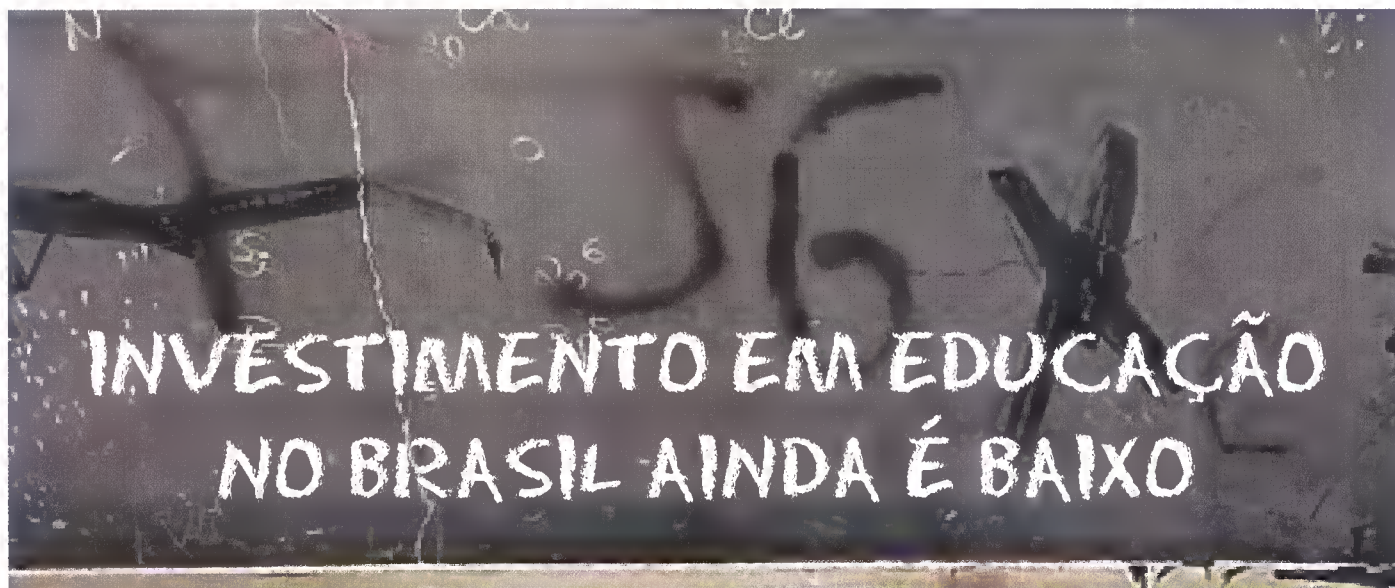 INVESTIMENTO EM EDUCAÇÃO
NO BRASIL AINDA É BAIXO